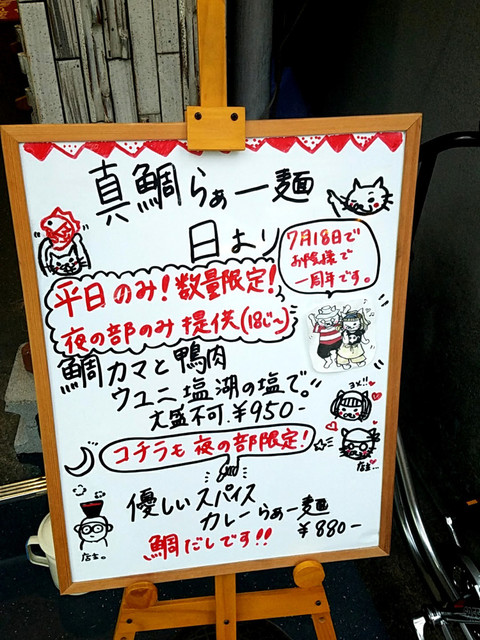 真鯛らぁー麺
日より
7月18日で
お陰様で
一周年です。
平日のみ!数量限定!
夜の部のみ提供(18じ〜)
鯛カマと鴨肉
ウユニ塩湖の塩で。
大盛不可.¥950-
コチラも夜の部限定!
優しいスパイス
カレーらぁー麺
¥880-
鯛だしです!!
店主。